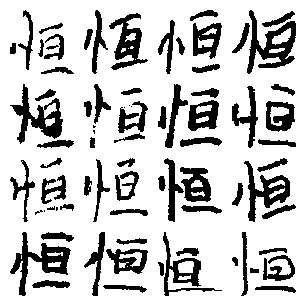 恒恒恒恒
恒恒恒恒
恒恒恒恒
恒恒恒恒